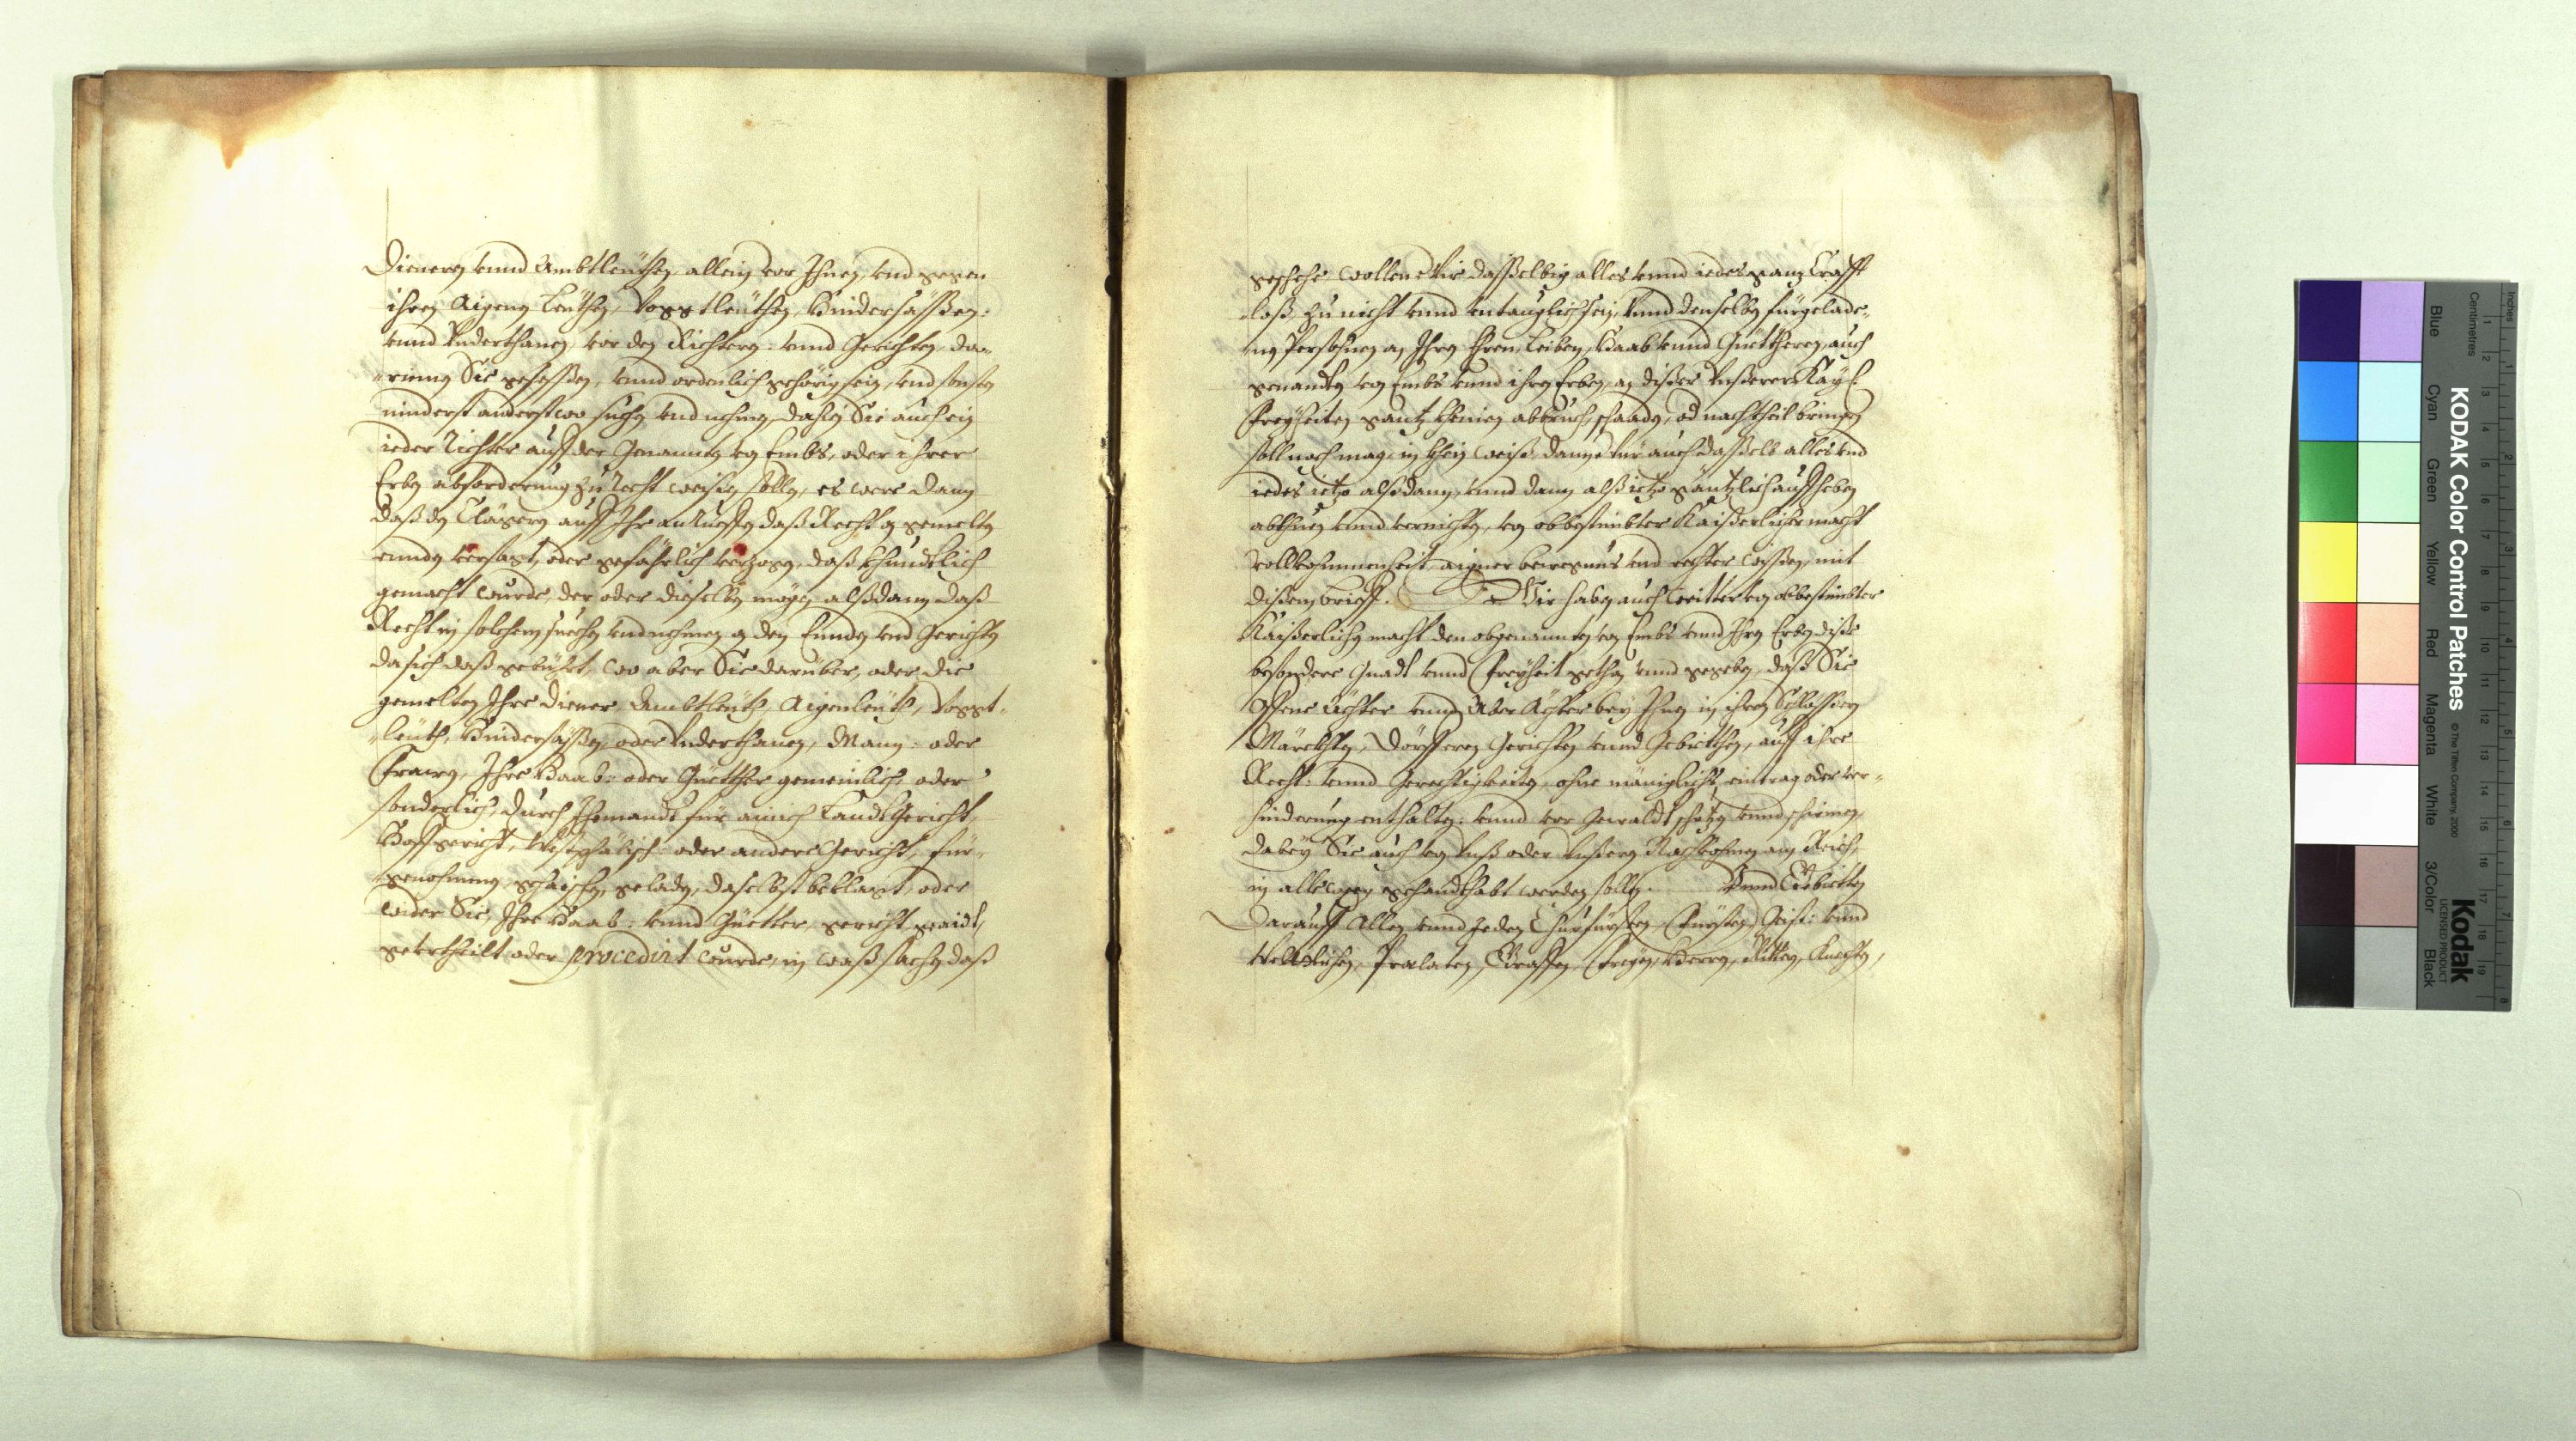 Dienern vnnd Ambtleüthen, allein vor Ihnen, vnd gegen
ihren Aigenen Leüthen, Vogtleüthen, Hindersäßen:
vnnd Vnderthanen, vor den Richtern: vnnd Gerichten, dar„
„rinnen Sie gesessen, vnnd ordenlich gehörig sein, vnd sonsten
ninderst anderstwo suchen, vnd nehmen, dahin Sie auch ein
ieder Richter auff der Genannten von Embs, oder ihrer
Erben abforderung zu Recht weisen sollen, es were dann
daß den Clägern auff Ihr anrueffen daß Recht an gemelten
ennden versagt, oder gefährlich verzogen, daß khundtlich
gemacht wurde, der oder dieselben mögen alßdann daß
Recht in solchem suechen, vnd nehmen an den Ennden vnd Gerichten
da sich daß gebührt, wo aber Sie darüber, oder die
gemelten Ihre Diener, Ambtleüth, Aigenleüth, Vogt„
„leüth, Hindersäßen, oder Vnderthanen, Mann: oder
Frawen, Ihre Haab: oder Güetther gemeinlich, oder
sonderlich, durch Jhemandt für ainich Landtgericht,
Hoffgericht, Westphälisch: oder andere Gericht, für„
„genohmen, gehaischen, geladen, daselbst beklagt, oder
wider Sie, Ihre Haab: vnnd Güetter, gericht, geaidt,
geurtheilt oder procedirt wurde, in waß sachen daß
geschehe, wollen Wir dasselbig alles vnnd iedes ganz Crafft
„loß, zu nicht vnnd vntauglich sein, Vnnd denselben fürgelade„
„nen Persohnen an Ihren Ehren, Leiben, Haab vnnd Güettheren, auch
genandten von Embs vnnd ihren Erben, an diser Vnserer Kayl:
Freyheiten gantz kheinen abbruch, schaden, od nachtheil bringen
soll noch mag, in khein weiß, dann Wir auch dasselb alles vnd
iedes ietzo alß dann, vnnd dann alß ietzo gäntzlich auffheben
abthuen vnnd vernichten, von obbestimbter Kaiserlicher macht
vollkhommenheit, aigner bewegnus vnd rechter wissen, mit
disem brieff. Wir haben auch weitter von obbestimbter
Kaiserlichen macht den obgenannten von Embs vnnd Ihren Erben dise
besondere Gnadt vnnd Freyheit gethan vnnd gegeben, daß Sie
Offene Ächter vnnd Aber Ächter bey Ihnen in ihren Schlössern
Märckhten, Dörfferen, Gerichten vnnd Gebietthen, auff ihre
Recht: vnnd Gerechtigkeiten, ohne mäniglichs eintrag oder ver„
hinderung enthalten: vnnd vor Gewaldt schutzen vnnd schirmen,
dabey Sie auch von Vnß oder Vnseren Nachkohmen am Reich,
in allweegen gehandthabt werden sollen. Vnnd Gebietten
darauff Allen vnnd Jeden Churfürsten, Fürsten, Geist: vnnd
Weltlichen, Prælaten, Graffen, Freyen, Herren, Rittern, Knechten,